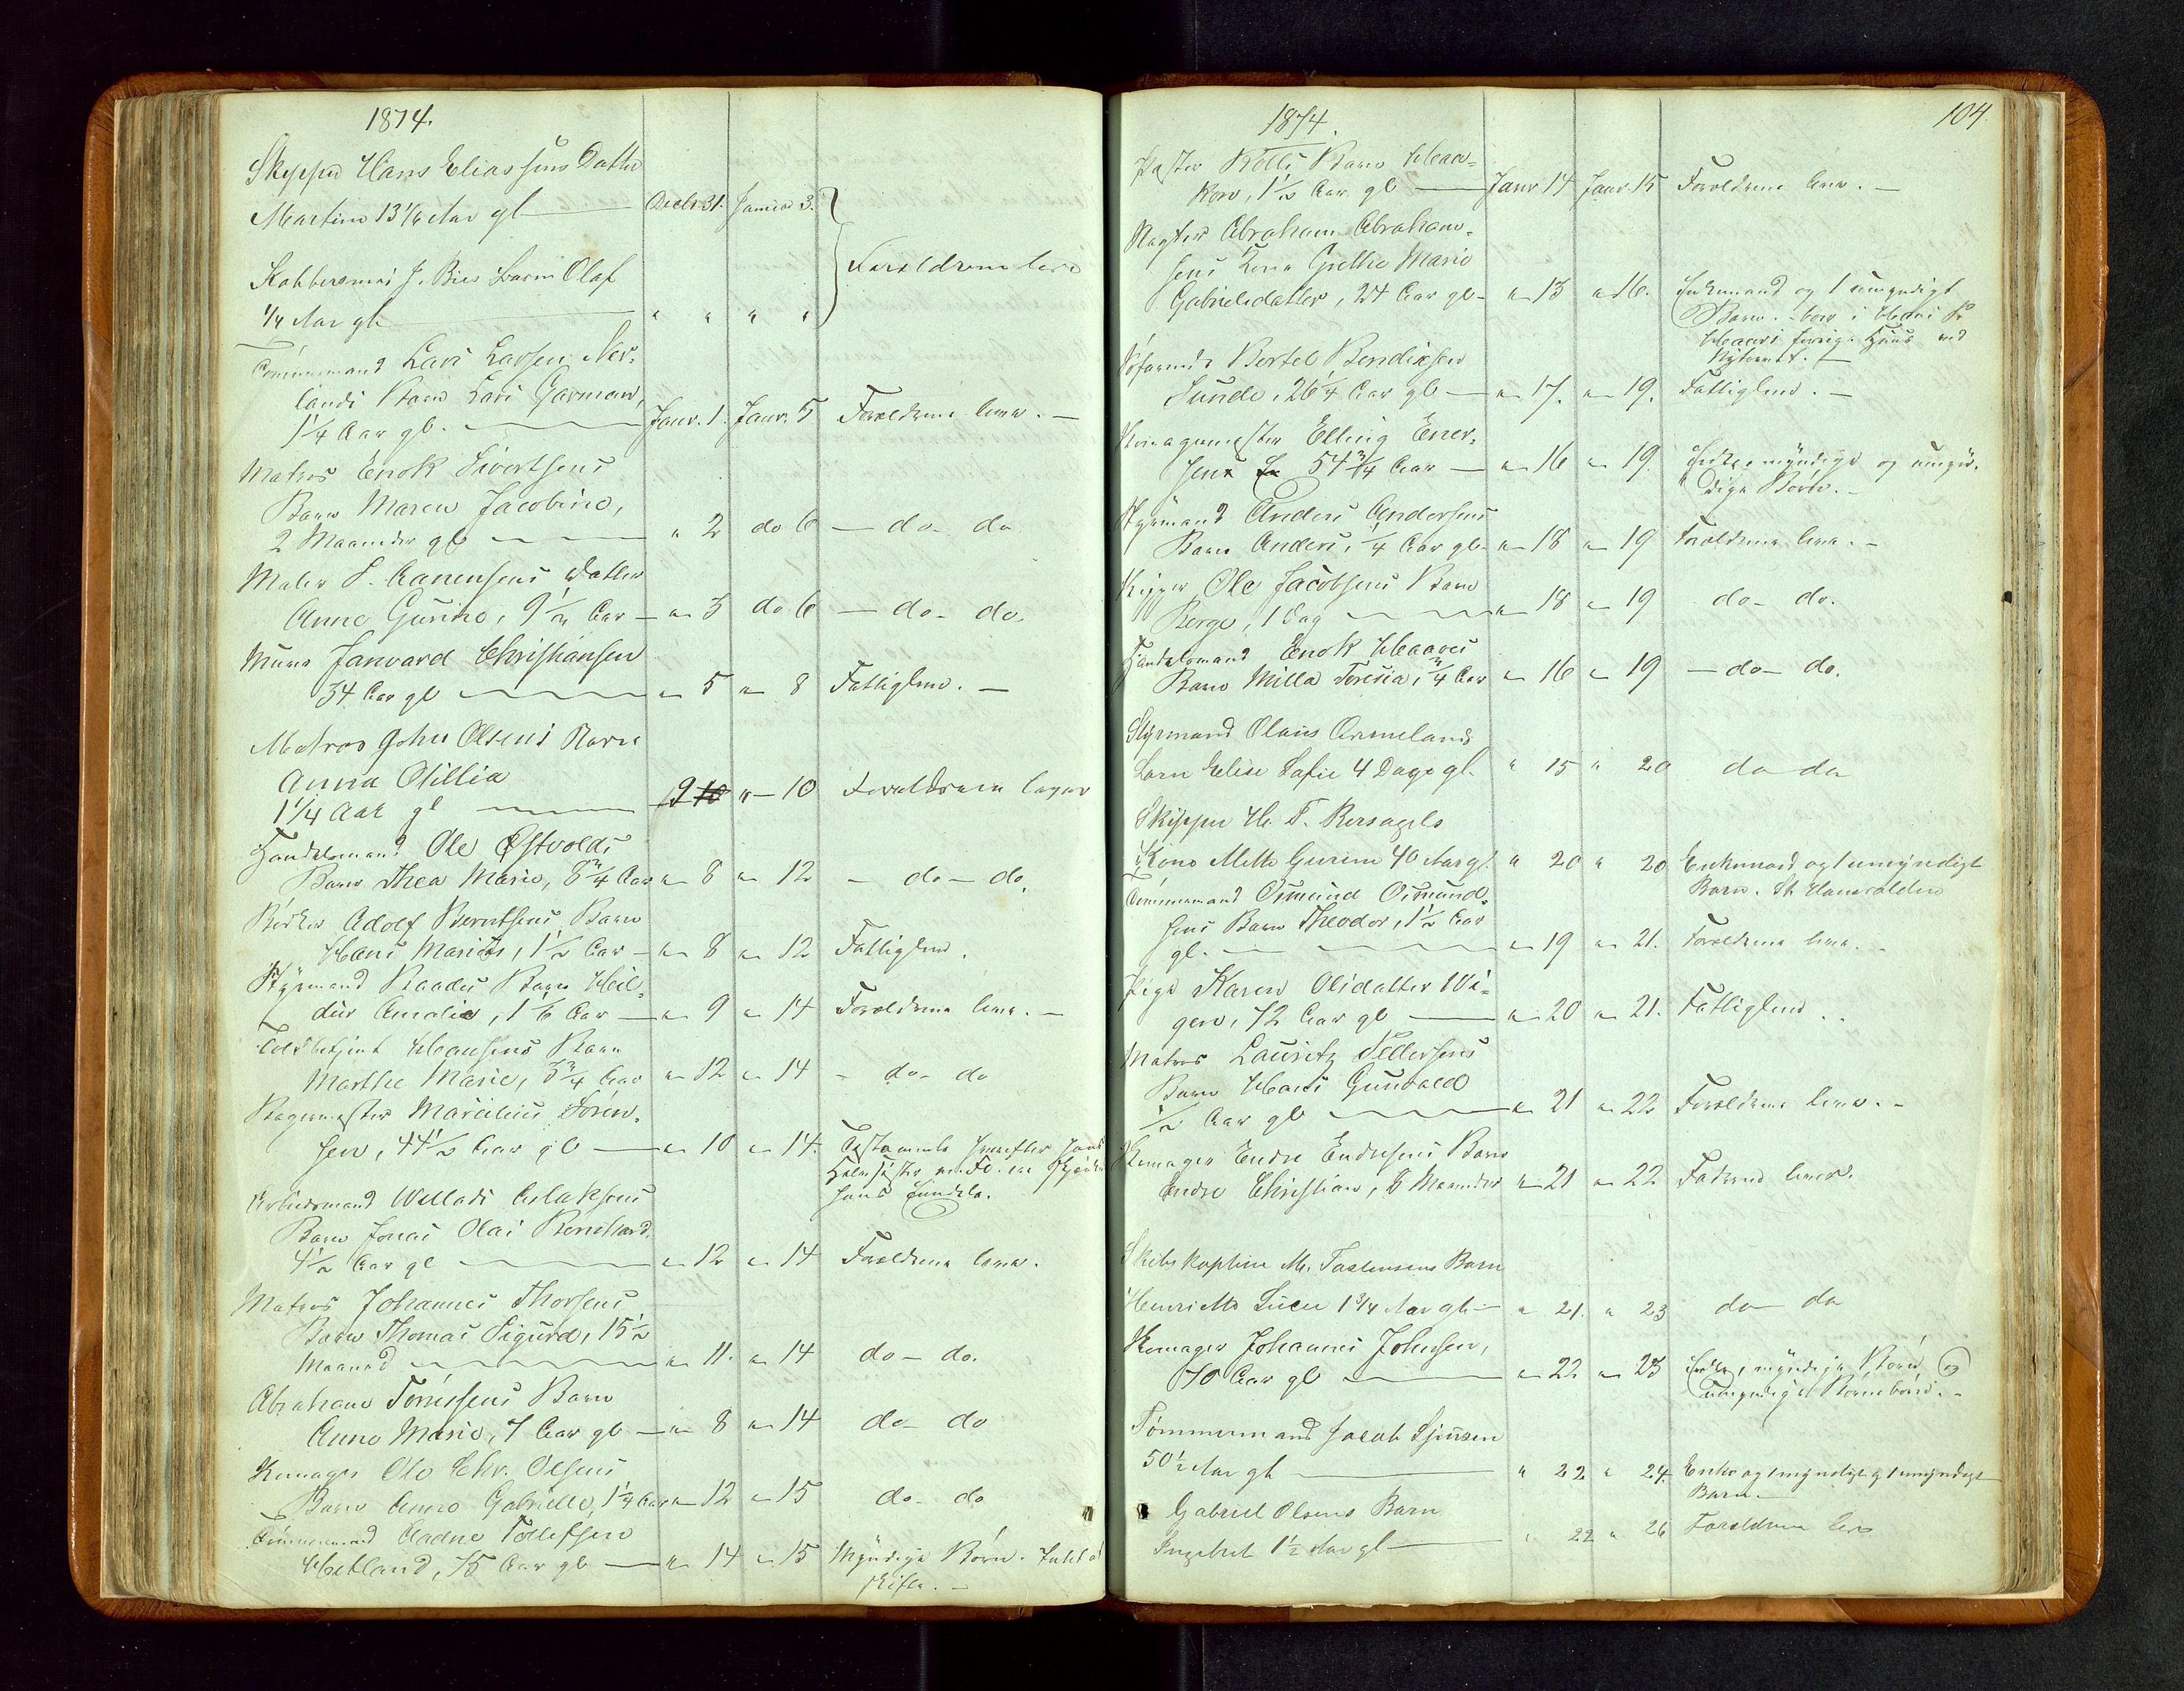 1874.
Skipper Hans Eliassens Datter
Martine 13 1/4 Aar gl — Decbr 31. Januar 3.
Kobbersmed J. Bies Barn Olaf
1/4 Aar gl — " " " " Forældrene leve
Tømmermand Lars Larsen Nor-
lands Barn Lars Garman,
1 1/4 Aar gl. — Janr. 1. Janr. 5 Forældrene leve. —
Matros Enok Sivertsens
Barn Maren Jacobine,
2 Maaneder gl — " 2 do 6 — do — do
Maler S. Aanensens Datter
Anne Gurine, 9 1/2 Aar — " 3 do 6 — do — do.
Murer Janvard Christiansen
34 Aar gl — " 5 " 8 Fattiglem. —
Matros John Olsens Barn
Anna Otillia
1 1/4 Aar gl — 9 10 " — 10 Forældrene lever
Handelsmand Ole Østvolds
Barn Thea Marie, 8 3/4 Aar " 8 " 12 — do — do.
Bødker Adolf Berntsens Barn
Hans Marius, 1 1/2 Aar — " 8 " 12 Fattiglem.
Styrmand Raades Barn Heil-
dur Amalie, 1 1/6 Aar — " 9 " 14 Forældrene leve. —
Toldbetjent Hansens Barn
Marthe Marie, 3 3/4 Aar " 12 " 14 — do — do
Bagermester Marselius Søren-
sen, 44 1/2 Aar gl — " 10 " 14. Testamente hans
Halvsøster
hans
Arbeidsmand Wellads Aslaksens
Barn Jonas Olai Bernhard
4 1/2 Aar gl — " 12 " 14 Forældrene leve.
Matros Johannes Thorsens
Barn Thomas Sigurd, 15 1/2
Maaned — " 11. " 14 do — do.
Abraham Tønnesens Barn
Anne Marie, 7 Aar gl — " 8 " 14 do — do
Kemager Ole Chr. Olsens
Barn Anne Gabrielle, 1 1/4 Aar " 12 " 15 do — do
Tømmermand Aadne Tollefsen
Hetland, 75 Aar gl — " 14 " 15 Myndige Børn.
skifte. —
104.
1874.
Barn Haa-
kon, 1 1/2 Aar gl — Janr 14 Janr. 15 Forældrene leve. —
Abraham Abraham-
sens Kone Grethe Marie
Gabrielsdatter, 24 Aar gl — " 13 " 16. Enkemand og 1 umyndigt
Barn. boer i Hans
forrige Huus ved
Nytorvet. —
Søfarende Bertel Bendixen
Sunde, 26 1/4 Aar gl — " 17. " 19. Fattiglem. —
Elling Ener-
sen 54 3/4 Aar — " 16 " 19. Enke, myndige og umyn-
dige Børn. —
Styrmand Anders Andersens
Barn Anders, 1/4 Aar gl — " 18 " 19 Forældrene leve. —
Ole Jacobsens Barn
Berge, 1 Dag — " 18 " 19 do — do.
Handelsmand Enok Haaves
Barn Milla Teresia, 3/4 Aar " 16 " 19 — do — do.
Styrmand Olaus Anmelands
Barn Elise Sofie 4 Dage gl. " 15 " 20 do do
Skipper H. T. Bersagels
Kone Mette Gurine 40 Aar gl. " 20 " 20 Enkemand og 1 umyndigt
Barn. St. Hansvolden
Tømmermand Osmund Osmund-
sens Barn Theodor, 1 1/2 Aar
gl. — " 19 " 21. Forældrene leve. —
Pige Karen Olsdatter Wi-
gen, 72 Aar gl — " 20 " 21. Fattiglem . .
Matros Lauritz Pedersens
Barn Hans Gunvald
1/2 Aar gl — " 21 " 22 Forældrene leve. —
Kemager Endre Endresens Barn
Endre Christian, 8 Maaneder " 21 " 22 Faderen lever.
Skibskaptein M. Tastensens Barn
Henriette Lucie 1 3/4 Aar gl — " 21. " 23 do — do
Kemager Johannes Johnsen,
70 Aar gl — " 22 " 23 Enke, myndige Børn og
umyndige Børnebørn. —
Tømmermand Jacob Sjursen
50 1/2 Aar gl — " 22 " 24. Enke og 1 myndigt og 1 umyndigt
Barn. —
Gabriel Olsens Barn
Ingebret 1 1/2 Aar gl — " 22 " 26 Forældrene leve